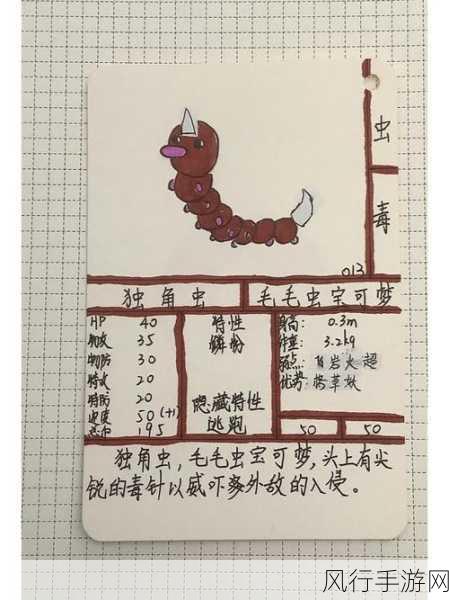 虫
毒
013
独角虫 毛毛虫宝可梦
HP 40
物攻 35
物防 30
特攻 20
特防 20
速度 50(+1)
总和 195
特性
鳞粉
隐藏特性
逃跑
身高: 0.3m
体重: 3.2kg
弱点: 飞岩火超
优势: 格草妖
50 50
独角虫,毛毛虫宝可梦,头上有尖
锐的毒针以威吓外敌的入侵。
风行手游网